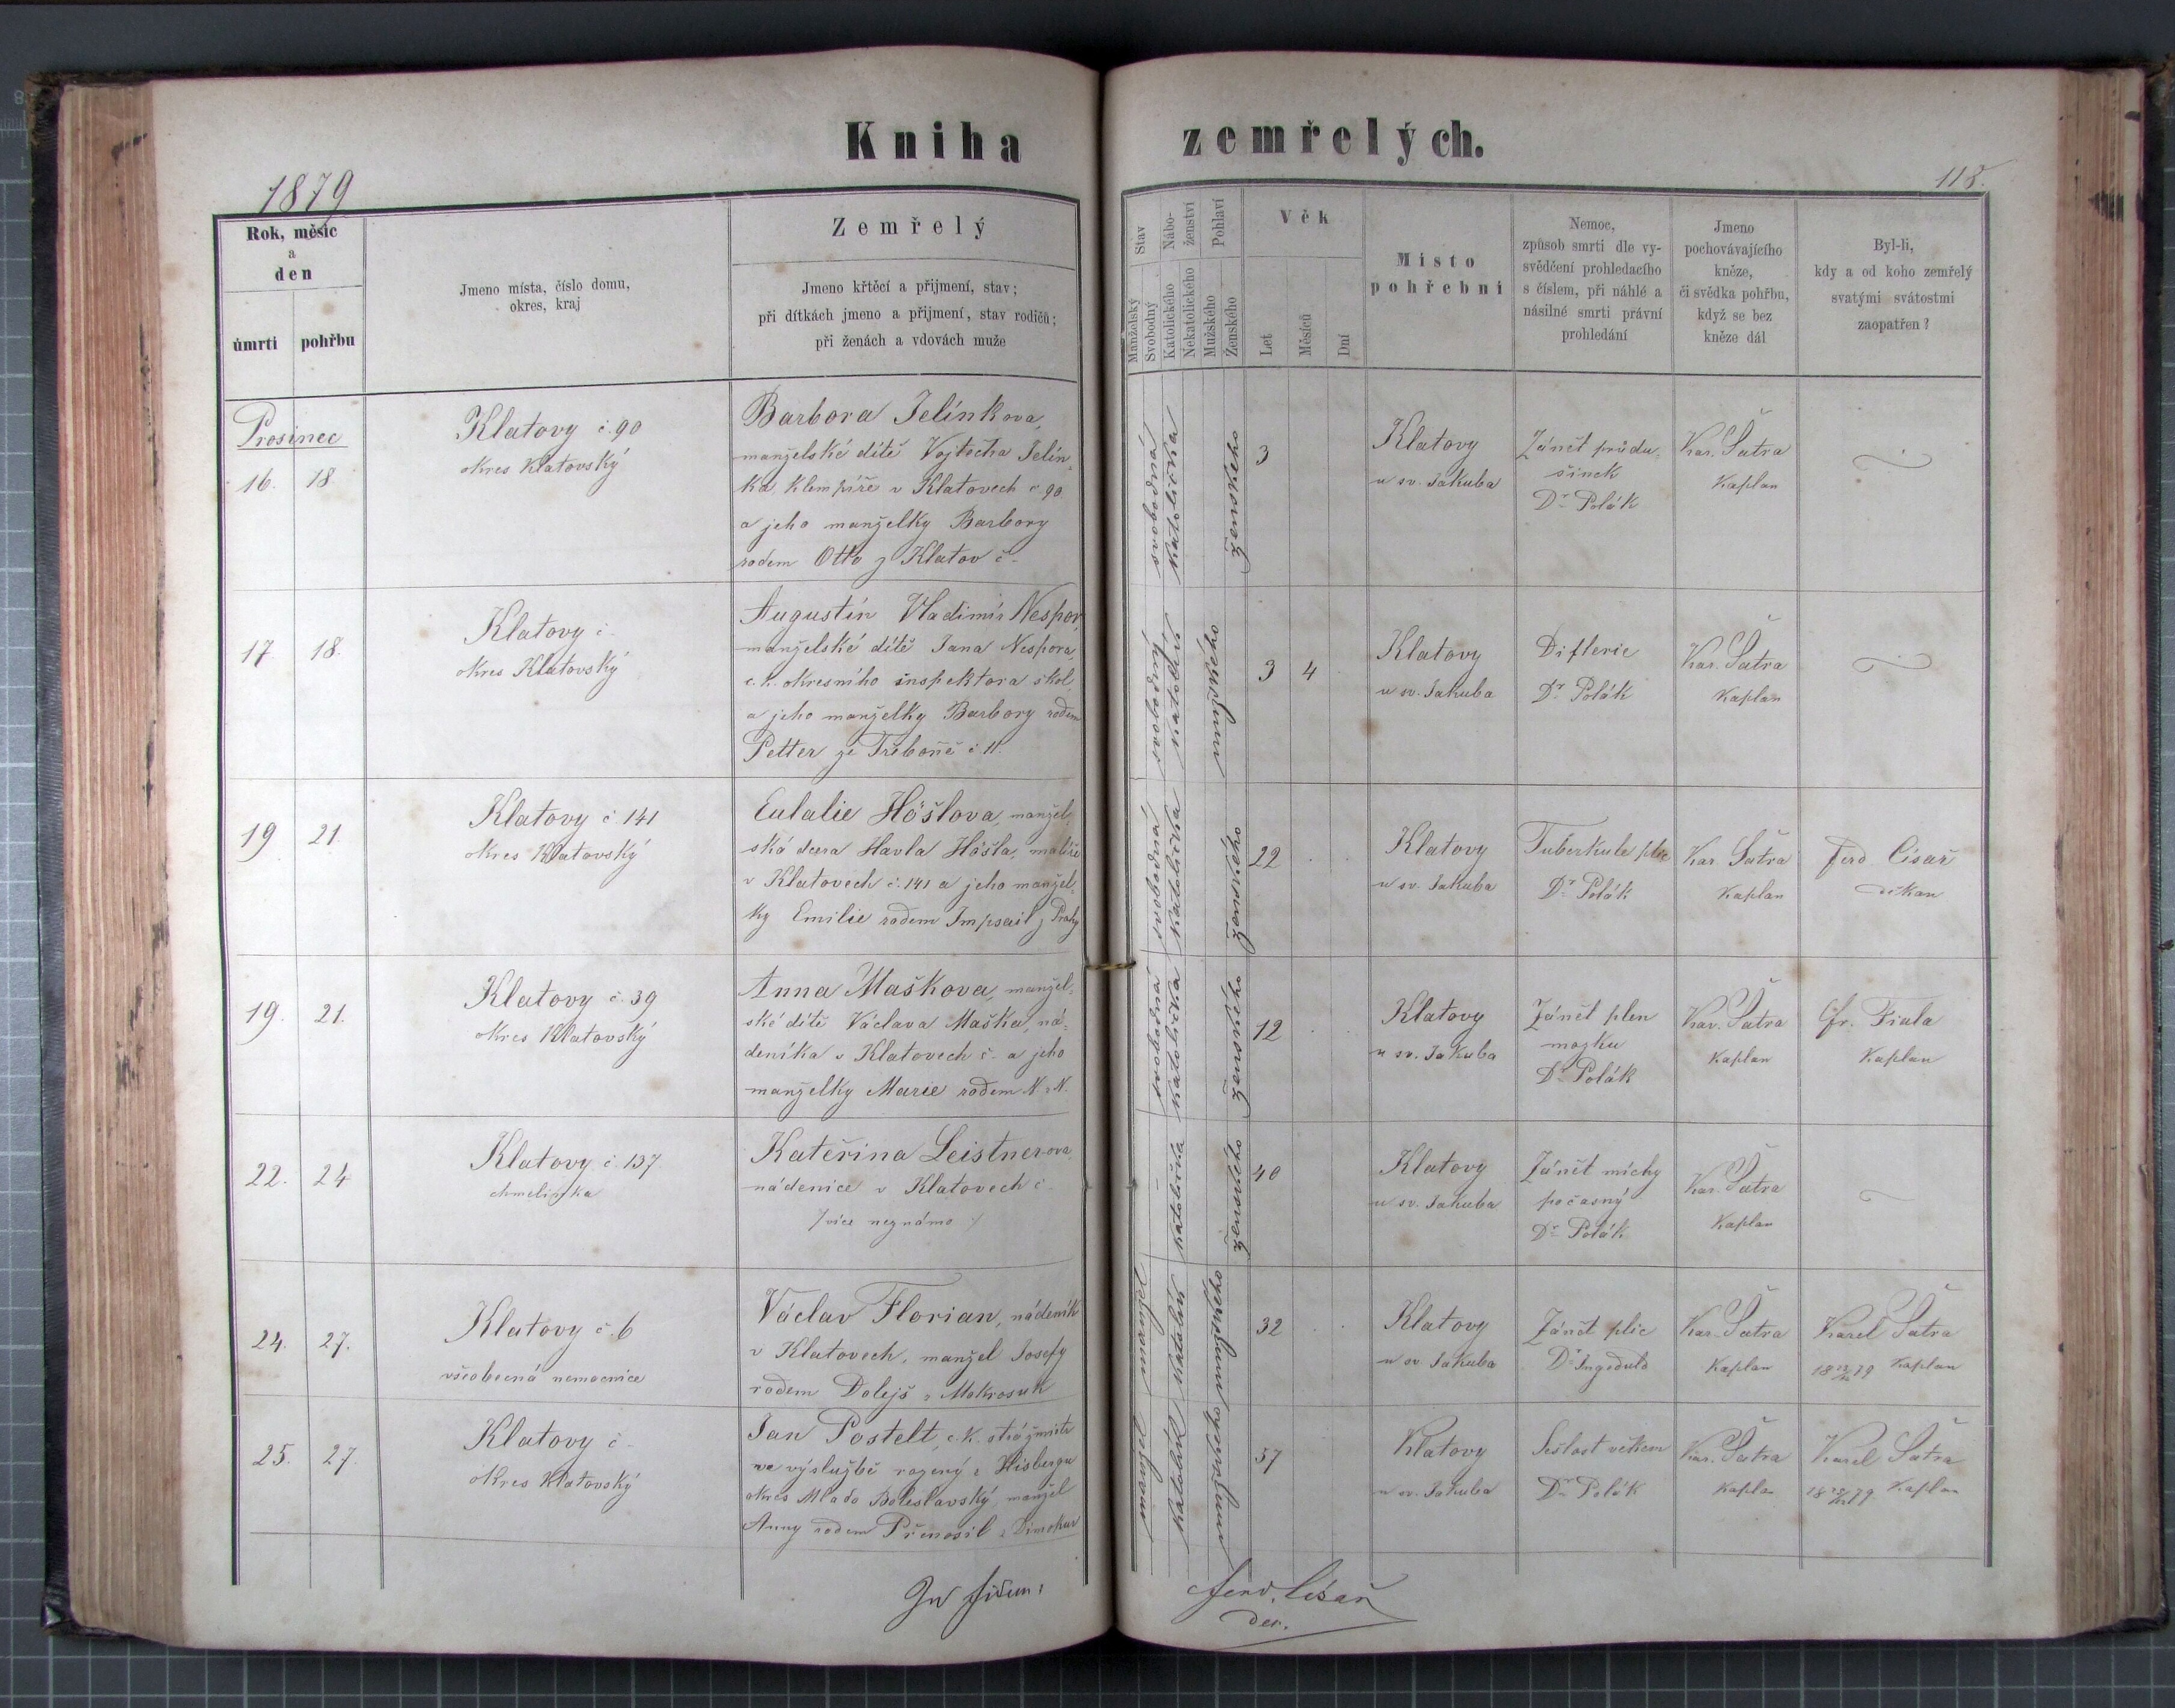 Kniha zemřelých.
1879
118.
Rok, měsíc
a
den
úmrtí
pohřbu
Jmeno místa, číslo domu,
okres, kraj
Zemřelý
Jmeno křtěcí a přijmení, stav;
při dítkách jmeno a přijmení, stav rodičů;
při ženách a vdovách muže
Stav
Manželský
Svobodný
Nábo-
ženství
Katolického
Nekatolického
Pohlaví
Mužského
Ženského
Věk
Let
Měsíců
Dní
Místo
pohřební
Nemoc,
způsob smrti dle vy-
svědčení prohledacího
s číslem, při náhlé a
násilné smrti právní
prohledání
Jmeno
pochovávajícího
kněze,
či svědka pohřbu,
když se bez
kněze dál
Byl-li,
kdy a od koho zemřelý
svatými svátostmi
zaopatřen?
Prosinec
16. 18
Klatovy č. 90
okres Klatovský
Barbora Jelínkova,
manželské dítě Vojtěcha Jelín-
ka klempíře v Klatovech č. 90
a jeho manželky Barbory
rodem Otto z Klatov č -
svobodná
katolička
ženského
3
Klatovy
u sv. Jakuba
Zánět průdu-
šinek
Dr. Polák
Kar. Šatra
Kaplan
17. 18.
Klatovy č -
okres Klatovský
Augustín Vladimír Nespor,
manželské dítě Jana Nespora,
c. k. okresního inspektora škol,
a jeho manželky Barbory rodem
Petter ze Třeboně č. 11.
svobodný
katolík
mužského
3 4
Klatovy
u sv. Jakuba
Difterie
Dr. Polák
Kar. Šatra
Kaplan
19 21.
Klatovy č. 141
okres Klatovský
Eulalie Höšlova, manžel-
ská dcera Havla Höšla, malíře
v Klatovech č. 141 a jeho manžel-
ky Emilie rodem z Prahy
svobodná
katolička
ženského
22
Klatovy
u sv. Jakuba
Tuberkule plic
Dr. Polák
Kar. Šatra
Kaplan
Ferd. Císař
děkan
19. 21.
Klatovy č. 39
okres Klatovský
Anna Maškova, manžel-
ské dítě Václava Maška, ná-
deníka v Klatovech č - a jeho
manželky Marie rodem N. N.
svobodná
katolička
ženského
12
Klatovy
u sv. Jakuba
Zánět plen
mozku
Dr. Polák
Kar. Šatra
Kaplan
Fr. Fiala
Kaplan
22. 24
Klatovy č. 137.
Kateřina Leistnerova,
nádenice v Klatovech č -
/: více neznámo :/
katolička
ženského
40
Klatovy
u sv. Jakuba
Zánět míchy
počasný
Dr. Polák
Kar. Šatra
Kaplan
24. 27.
Klatovy č. 6
všeobecná nemocnice
Václav Florian, nádeník
v Klatovech, manžel Josefy
rodem Dolejš z Mokrosuk
manžel
katolík
mužského
32
Klatovy
u sv. Jakuba
Zánět plic
Dr. Ingeduld
Kar. Šatra
Kaplan
Karel Šatra
Kaplan
25. 27.
Klatovy č -
okres Klatovský
Jan Postelt, c. k. strážmistr
ve výslužbě rozený z
okres Mlado Boleslavský manžel
Anny rodem Přenosil z Dimokur
manžel
katolík
mužského
57
Klatovy
u sv. Jakuba
Sešlost věkem
Dr. Polák
Kar. Šatra
Kaplan
Karel Šatra
Kaplan
Ferd. Císař
děk.